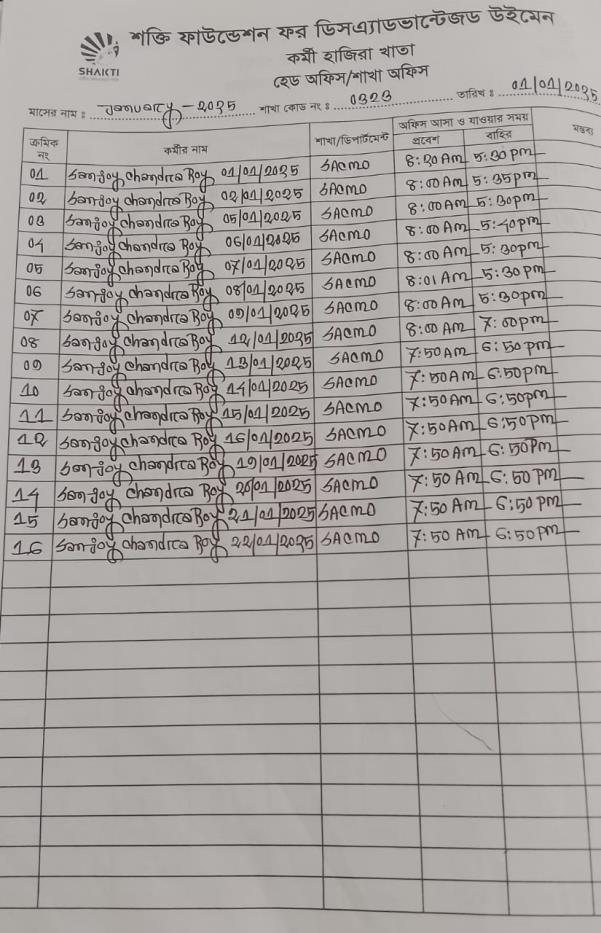 শক্তি ফাউন্ডেশন ফর ডিসএ্যাডভান্টেজড উইমেন
SHAKTI
কর্মী হাজিরা খাতা
হেড অফিস/শাখা অফিস
মাসের নাম : January - 2025 শাখা কোড নং : 0323 তারিখ : 01/01/2025
ক্রমিক নং কর্মীর নাম শাখা/ডিপার্টমেন্ট অফিস আসা ও যাওয়ার সময় মন্তব্য
প্রবেশ বাহির
01 Sanjoy Chandra Roy 01/01/2025 SACMO 8:20 Am 5:30 pm
02 Sanjoy Chandra Roy 02/01/2025 SACMO 8:00 Am 5:35 pm
03 Sanjoy Chandra Roy 05/01/2025 SACMO 8:00 Am 5:30 pm
04 Sanjoy Chandra Roy 06/01/2025 SACMO 8:00 Am 5:40 pm
05 Sanjoy Chandra Roy 07/01/2025 SACMO 8:00 Am 5:30 pm
06 Sanjoy Chandra Roy 08/01/2025 SACMO 8:01 Am 5:30 pm
07 Sanjoy Chandra Roy 09/01/2025 SACMO 8:00 Am 5:30 pm
08 Sanjoy Chandra Roy 12/01/2025 SACMO 8:00 Am 7:00 pm
09 Sanjoy Chandra Roy 13/01/2025 SACMO 7:50 Am 6:50 pm
10 Sanjoy Chandra Roy 14/01/2025 SACMO 7:50 Am 6:50 pm
11 Sanjoy Chandra Roy 15/01/2025 SACMO 7:50 Am 6:50 pm
12 Sanjoy Chandra Roy 16/01/2025 SACMO 7:50 Am 6:50 pm
13 Sanjoy Chandra Roy 19/01/2025 SACMO 7:50 Am 6:50 pm
14 Sanjoy Chandra Roy 20/01/2025 SACMO 7:50 Am 6:50 pm
15 Sanjoy Chandra Roy 21/01/2025 SACMO 7:50 Am 6:50 pm
16 Sanjoy Chandra Roy 22/01/2025 SACMO 7:50 Am 6:50 pm